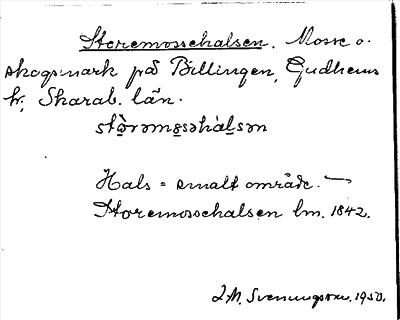 Storemossehalsen. Mosse o.
skogsmark på Billingen, Gudhems
hr, Skarab. län.
stòrəmosəhàlsən
Hals = smalt område. —
Storemossehalsen lm. 1842.
J. M. Svenungsson. 1950.